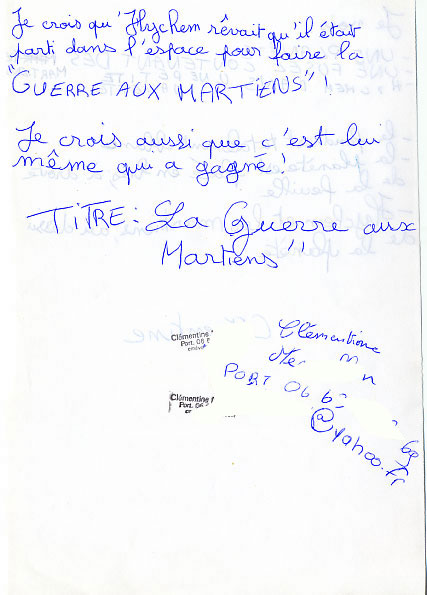 Je crois qu'Hychem rêvait qu'il était
parti dans l'espace pour faire la
"GUERRE AUX MARTIENS" !
Je crois aussi que c'est lui
même qui a gagné !
TITRE : La Guerre aux
Martiens"
Clémentine
Port. 06
Clémentine
PORT 06 6
@yahoo.fr
Clémentine
Port. 06